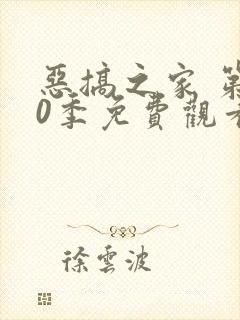 惡搞之家 第
0季免費觀看
徐雲波